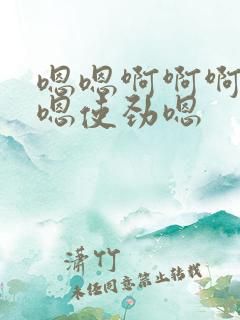 嗯嗯啊啊啊
嗯使劲嗯
潇竹
未经同意禁止转载